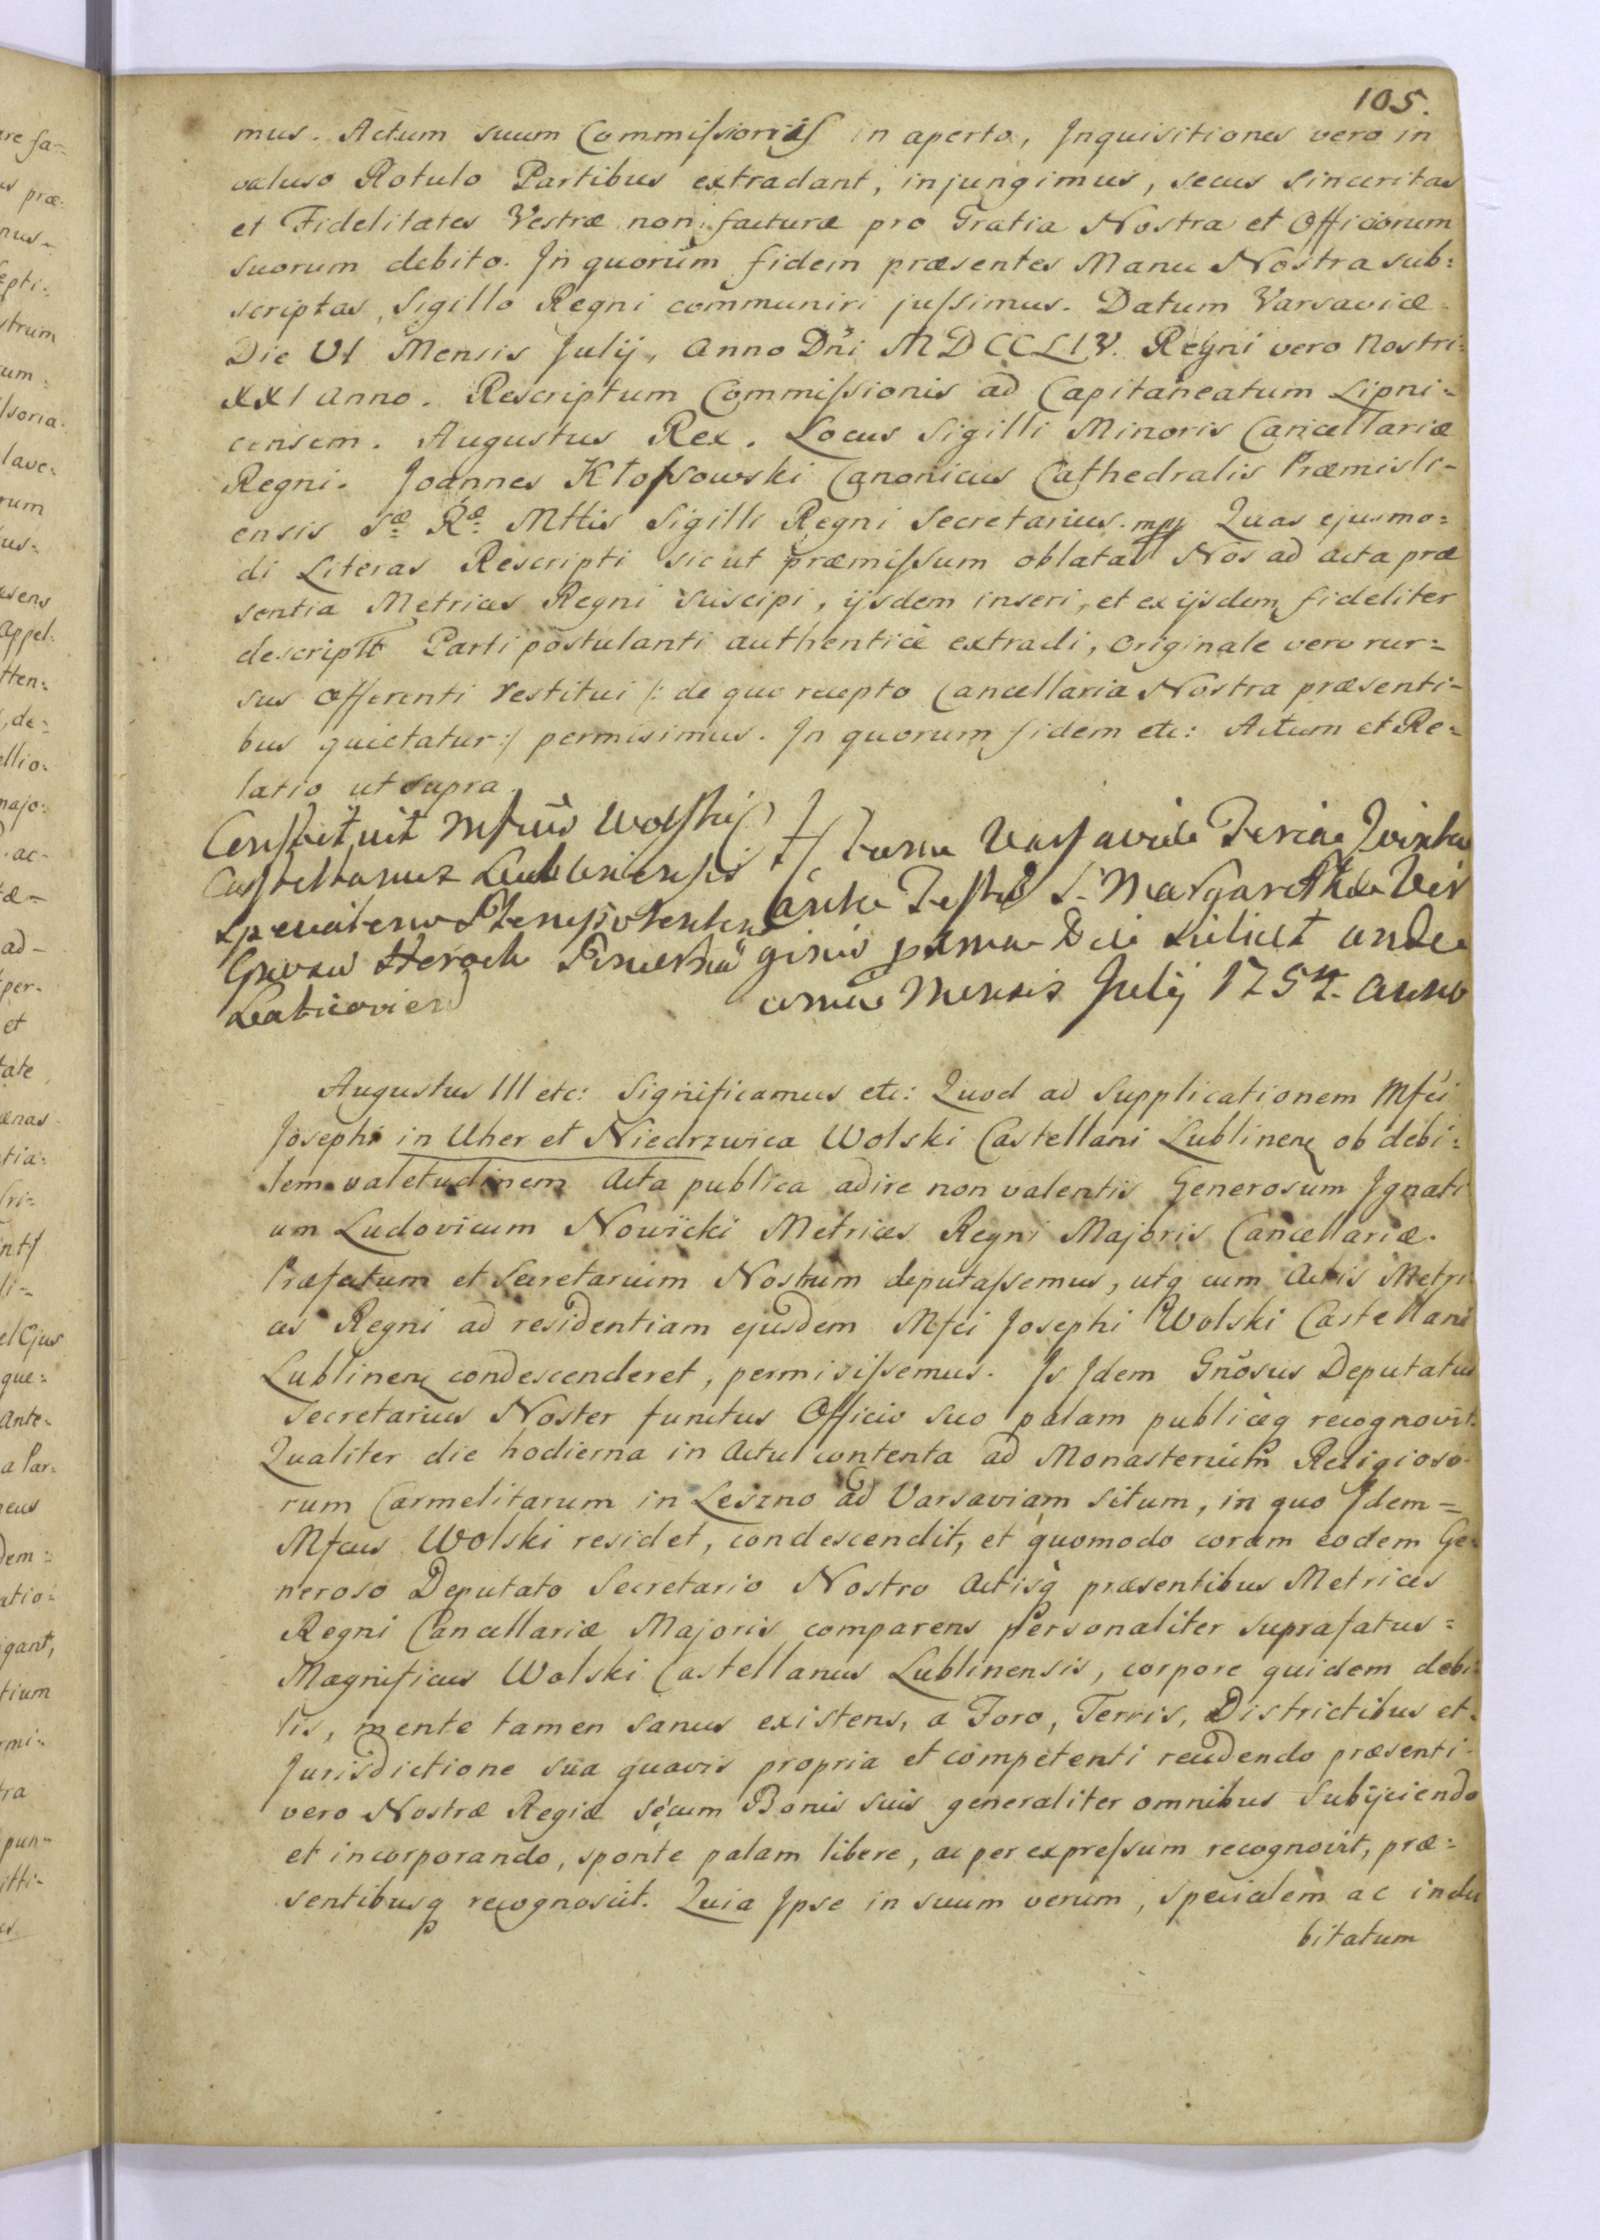 105.
mus. Actum suum Commissoriis in aperto, Inquisitiones vero in
valuso Rotulo Partibus extradant, injungimus, secus Sinceritas
et Fidelitates Vestræ non facturæ pro Gratia Nostra et Officiorum
suorum debito. In quorum fidem præsentes Manu Nostra sub=
scriptas, Sigillo Regni communiri jussimus. Datum Varsaviæ
Die VI Mensis Julij, Anno Dñi MDCCLIV. Regni vero Nostri
XXI Anno. Rescriptum Commissionis ad Capitaneatum Lipni=
censem. Augustus Rex. Locus Sigilli Minoris Cancellariæ
Regni. Joannes Kłossowski Canonicus Cathedralis Præmisli-
ensis Sæ Ræ Mttis Sigilli Regni Secretarius. mpp Quas ejusmo=
di Literas Rescripti sicut præmissum oblatas Nos ad acta præ
sentia Metrices Regni suscipi, ijsdem inseri, et ex ijsdem fideliter
descriptt Parti postulanti authenticè extradi, Originale vero rur=
sus offerenti restitui /: de quo recepto Cancellaria Nostra præsenti-
bus quietatur :/ permisimus. In quorum fidem etc: Actum et Re=
latio ut supra.
Constituit Mfcus Wolski
Castellanus Lublinensis
Gnosu
Laticovien
Varsaviæ Feria Quinta
ante Festũ S. Margarethæ Vir
ginis prima Die scilicet unde
cima Mensis Julij 1754. anno
Augustus III etc: Significamus etc: Quod ad Supplicationem Mfci
Josephi in Uher et Niedrzwica Wolski Castellani Lublinen ob debi=
lem valetudinem Acta publica adire non valentis Generosum Ignati
um Ludovicum Nowicki Metrices Regni Majoris Cancellariæ.
Præfectum et Secretarium Nostrum deputassemus, utq cum Actis Metri
ces Regni ad residentiam ejusdem Mfci Josephi Wolski Castellani
Lublinen condescenderet, permisissemus. Is Idem Gnõsus Deputatus
Secretarius Noster functus Officio suo palam publiceq recognovit.
Qualiter die hodierna in Actu contenta ad Monasterium Religioso-
rum Carmelitarum in Leszno ad Varsaviam situm, in quo Idem =
Mfcus Wolski residet, condescendit, et quomodo coram eodem Ge=
neroso Deputato Secretario Nostro Actisq præsentibus Metrices
Regni Cancellariæ Majoris comparens personaliter suprafatus =
Magnificus Wolski Castellanus Lublinensis, corpore quidem debi=
lis, mente tamen sanus existens, a Foro, Terris, Districtibus et
Jurisdictione sua quavis propria et competenti recedendo præsenti
vero Nostræ Regiæ secum Bonis suis generaliter omnibus Subijciendo
et incorporando, sponte palam libere, ac per expressum recognovit, præ=
sentibusq recognoscit. Quia Ipse in suum verum, specialem ac indu
bitatum